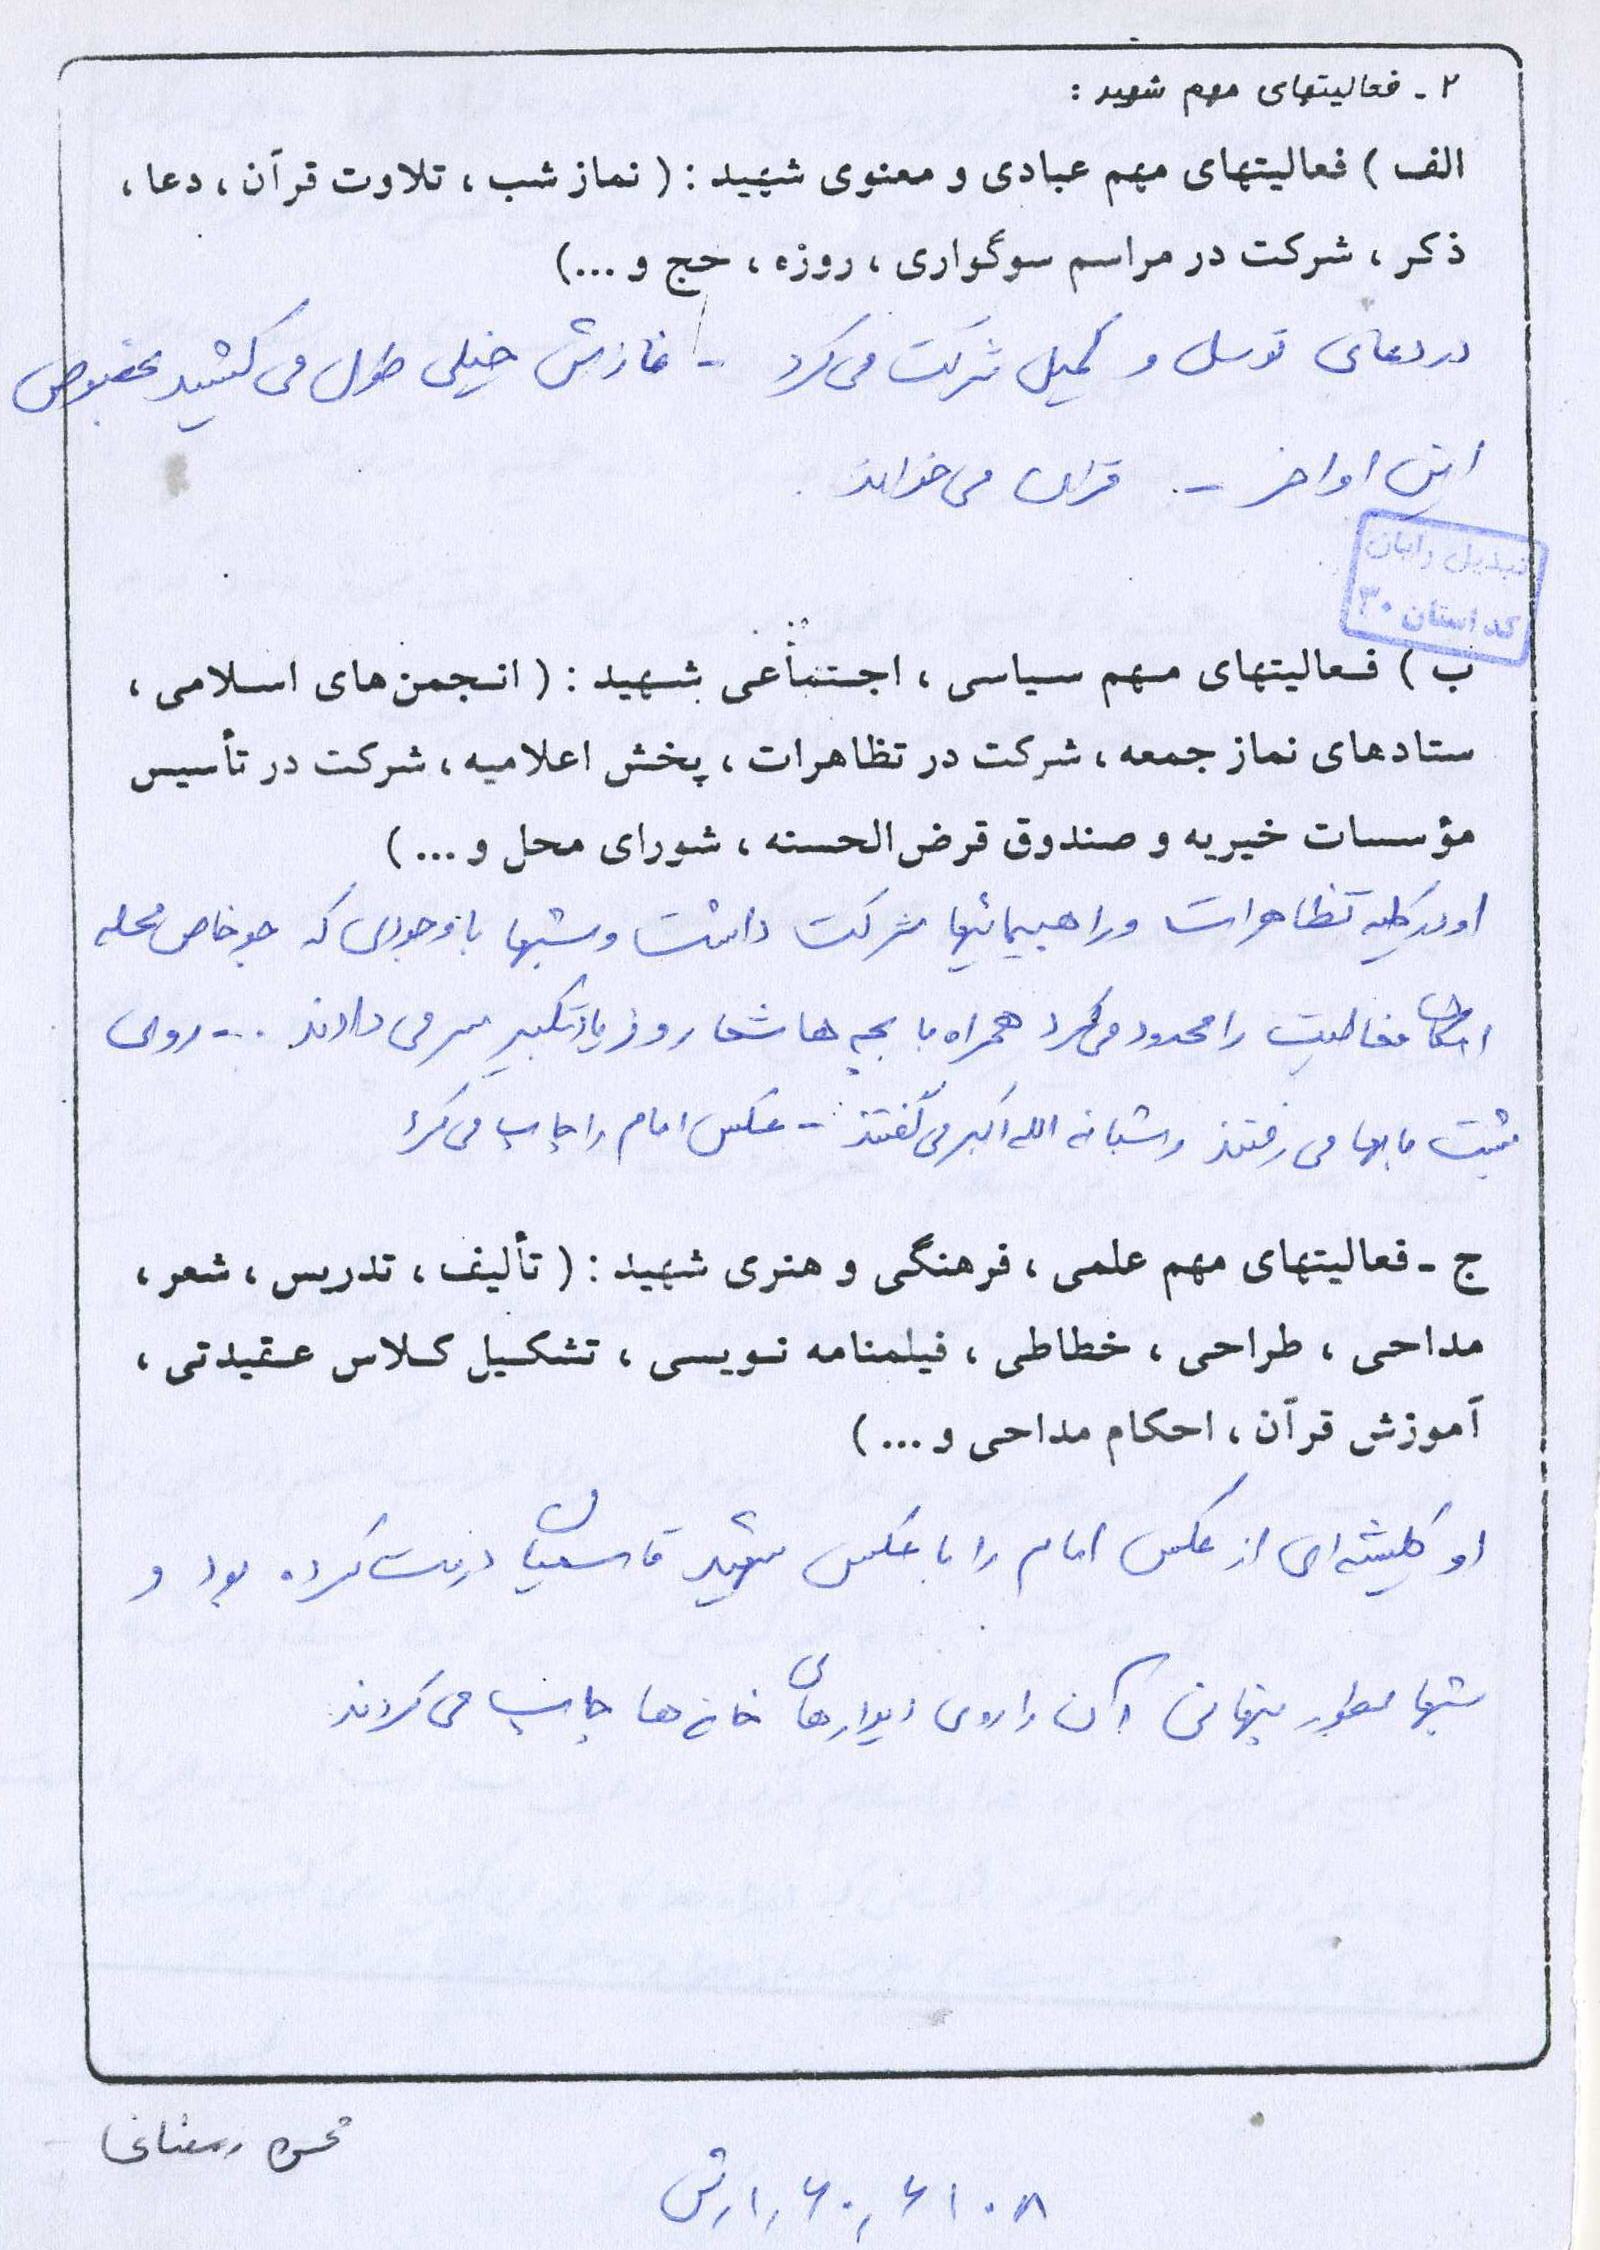 ۲ - فعالیتهای مهم شهید :
الف ) فعالیتهای مهم عبادی و معنوی شهید : ( نماز شب ، تلاوت قرآن ، دعا ،
ذکر ، شرکت در مراسم سوگواری ، روزه ، حج و ...)
در دعای توسل و کمیل شرکت می کرد - نمازش خیلی طول می کشید بخصوص
این اواخر - قرآن می خواند .
تبدیل رایان
کد استان ۳۰
ب ) فعالیتهای مهم سیاسی ، اجتماعی شهید : ( انجمن های اسلامی ،
ستادهای نماز جمعه ، شرکت در تظاهرات ، پخش اعلامیه ، شرکت در تأسیس
مؤسسات خیریه و صندوق قرض الحسنه ، شورای محل و ... )
او در کلیه تظاهرات و راهپیمائیها شرکت داشت و شبها با وجودی که جو خاص محله
امکان فعالیت را محدود می کرد همراه با بچه ها شعار و فریاد تکبیر سر می دادند .- روی
پشت بامها می رفتند و شبانه الله اکبر می گفتند - عکس امام را چاپ می کرد
ج - فعالیتهای مهم علمی ، فرهنگی و هنری شهید : ( تألیف ، تدریس ، شعر ،
مداحی ، طراحی ، خطاطی ، فیلمنامه نویسی ، تشکیل کلاس عقیدتی ،
آموزش قرآن ، احکام مداحی و ... )
او کلیشه ای از عکس امام را با عکس شهید درست کرده بود و
شبها بطور پنهانی آن را روی دیوارهای خانه ها چاپ می کردند
رمضانی